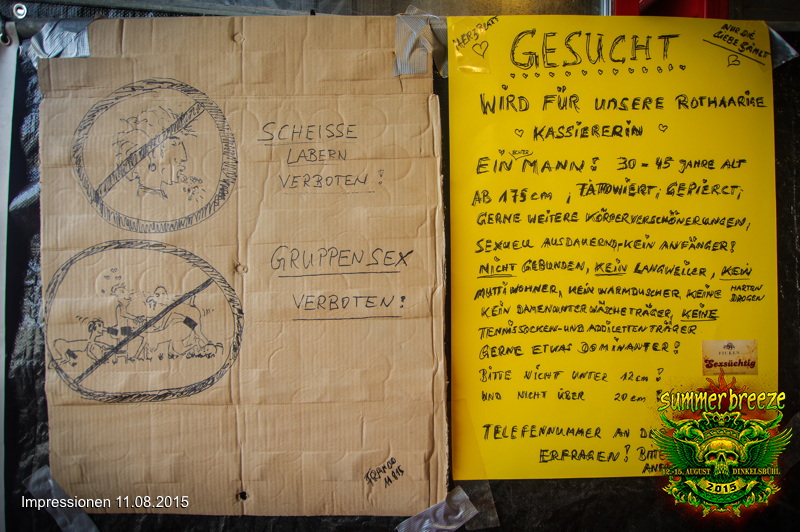 SCHEISSE
LABERN
VERBOTEN!
GRUPPENSEX
VERBOTEN!
11.8.15
HERBLATT
GESUCHT
NUR DIE
LIEBE ZÄHLT
WIRD FÜR UNSERE ROTHAARIGE
KASSIERERIN
EIN MANN! 30-45 JAHRE ALT
AB 175cm, TÄTOWIERT, GEPIERCT,
GERNE WEITERE KÖRPERVERSCHÖNERUNGEN,
SEXUELL AUSDAUERND-KEIN ANFÄNGER!
NICHT GEBUNDEN, KEIN LANGWEILER, KEIN
MUTTIWOHNER, KEIN WARMDUSCHER, KEINE HARTEN
DROGEN
KEIN DAMENUNTERWÄSCHETRÄGER, KEINE
TENNISSOCKEN-UND ADDILETTENTRÄGER
GERNE ETWAS DOMINANTER!
BITTE NICHT UNTER 12cm!
UND NICHT ÜBER 20cm!
TELEFENNUMMER AN DER
ERFRAGEN! BITTE
FICKEN
Sexsüchtig
summerbreeze
12.-15. AUGUST DINKELSBÜHL
2015
Impressionen 11.08.2015